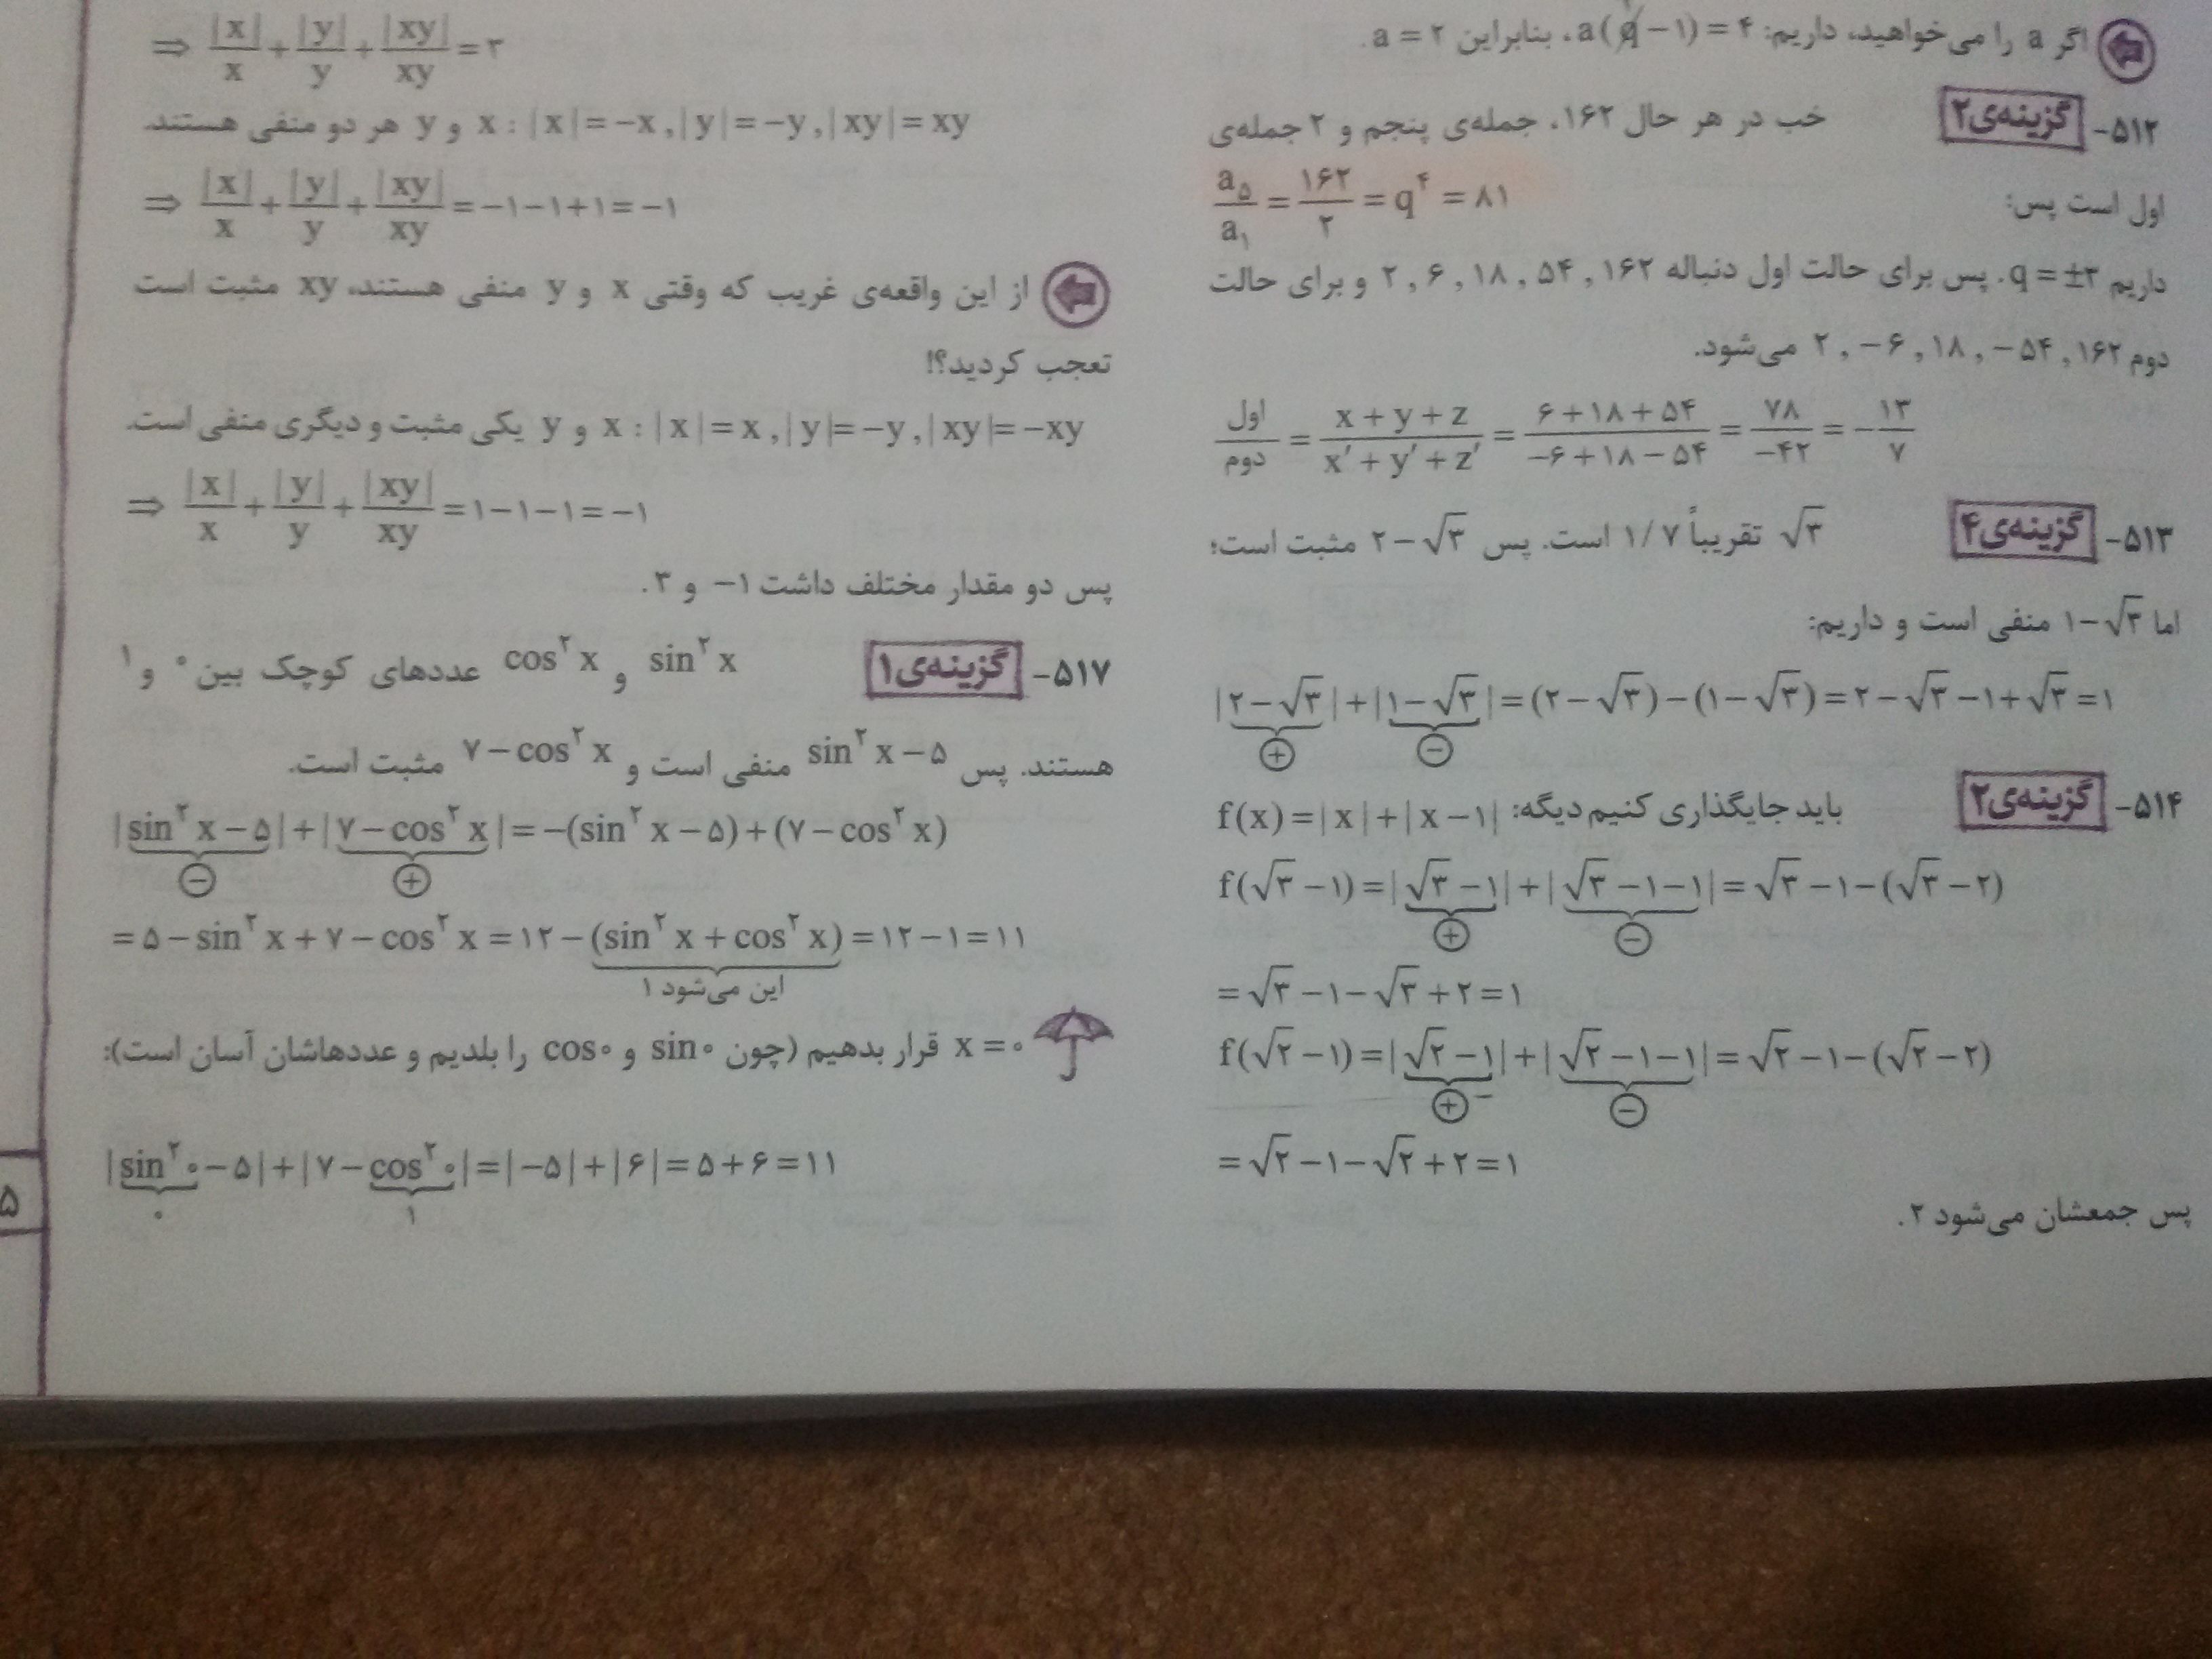 اگر a را می‌خواهید، داریم: a(q-۱) = ۴، بنابراین a = ۲.
۵۱۲- گزینه‌ی ۲ خب در هر حال ۱۶۲، جمله‌ی پنجم و ۲ جمله‌ی
اول است پس: a₅/a₁ = ۱۶۲/۲ = q^۴ = ۸۱
داریم q = ±۳. پس برای حالت اول دنباله ۲ , ۶ , ۱۸ , ۵۴ , ۱۶۲ و برای حالت
دوم ۲ , -۶ , ۱۸ , -۵۴ , ۱۶۲ می‌شود.
اول/دوم = (x+y+z)/(x′+y′+z′) = (۶+۱۸+۵۴)/(-۶+۱۸-۵۴) = ۷۸/-۴۲ = -۱۳/۷
۵۱۳- گزینه‌ی ۴ √۳ تقریباً ۱/۷ است. پس ۲-√۳ مثبت است؛
اما ۱-√۳ منفی است و داریم:
|۲-√۳|+|۱-√۳| = (۲-√۳)-(۱-√۳) = ۲-√۳-۱+√۳ = ۱
+ -
۵۱۴- گزینه‌ی ۲ باید جایگذاری کنیم دیگه: f(x) = |x|+|x-۱|
f(√۳-۱) = |√۳-۱|+|√۳-۱-۱| = √۳-۱-(√۳-۲)
+ -
= √۳-۱-√۳+۲ = ۱
f(√۲-۱) = |√۲-۱|+|√۲-۱-۱| = √۲-۱-(√۲-۲)
+ -
= √۲-۱-√۲+۲ = ۱
پس جمعشان می‌شود ۲.
⇒ |x|/x + |y|/y + |xy|/xy = ۳
x و y هر دو منفی هستند. : |x| = -x , |y| = -y , |xy| = xy
⇒ |x|/x + |y|/y + |xy|/xy = -۱-۱+۱ = -۱
از این واقعه‌ی غریب که وقتی x و y منفی هستند، xy مثبت است
تعجب کردید؟!
x و y یکی مثبت و دیگری منفی است. : |x| = x , |y| = -y , |xy| = -xy
⇒ |x|/x + |y|/y + |xy|/xy = ۱-۱-۱ = -۱
پس دو مقدار مختلف داشت ۱- و ۳.
۵۱۷- گزینه‌ی ۱ sin^۲ x و cos^۲ x عددهای کوچک بین ۰ و ۱
هستند. پس sin^۲ x - ۵ منفی است و ۷ - cos^۲ x مثبت است.
|sin^۲ x - ۵|+|۷ - cos^۲ x| = -(sin^۲ x - ۵)+(۷ - cos^۲ x)
- +
= ۵ - sin^۲ x + ۷ - cos^۲ x = ۱۲ - (sin^۲ x + cos^۲ x) = ۱۲ - ۱ = ۱۱
این می‌شود ۱
x = ۰ قرار بدهیم (چون sin۰ و cos۰ را بلدیم و عددهاشان آسان است):
|sin^۲ ۰ - ۵|+|۷ - cos^۲ ۰| = |-۵|+|۶| = ۵+۶ = ۱۱
۰ ۱
۵